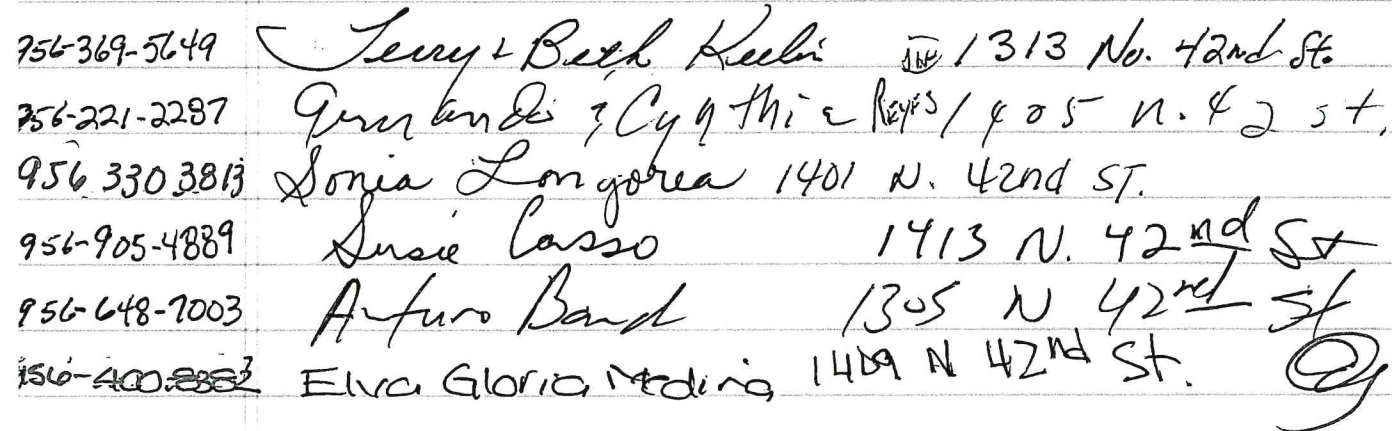 956-369-5649 Terry & Beth 1313 No. 42nd St.
956-221-2287 & Cynthia Reyes 1405 N. 42 st.
956 330 3813 Sonia Longorea 1401 N. 42nd ST.
956-905-4889 Susie Casso 1413 N. 42nd St
956-648-7003 Arturo 1305 N 42nd St
Elva Gloria Medina 1409 N 42nd St.